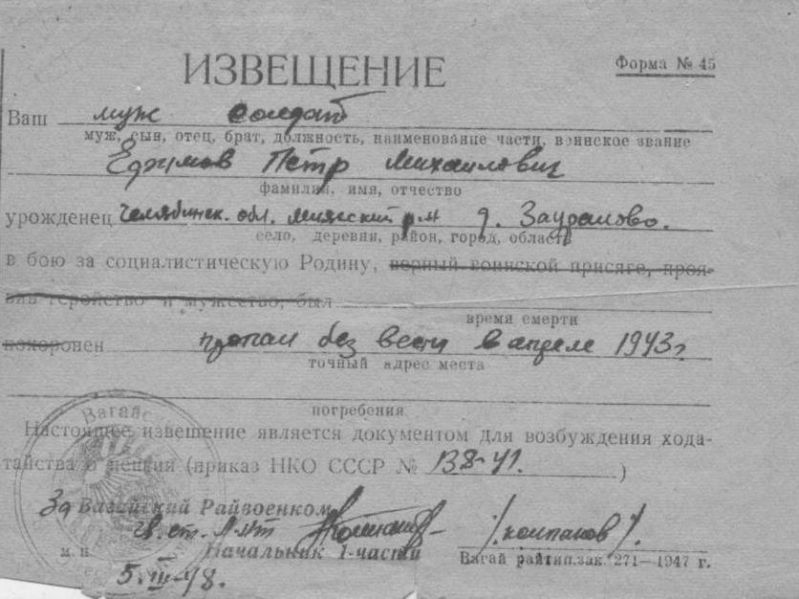 ИЗВЕЩЕНИЕ
Форма № 45
Ваш муж солдат
муж, сын, отец, брат, должность, наименование части, воинское звание
Ефимов Петр Михаилович
фамилия, имя, отчество
урожденец Челябинск. обл. Миасский р-н д. Зауралово.
село, деревня, район, город, область
в бою за социалистическую Родину, верный воинской присяге, проя-
вив геройство и мужество, был
время смерти
похоронен пропал без вести в апреле 1943 г
точный адрес места
погребения
Настоящее извещение является документом для возбуждения хода-
тайства о пенсии (приказ НКО СССР № 138-41.)
За Вагайский Райвоенком
ст. Л-нт /Колпаков/.
м. п. Начальник 1-части
Вагай райтип. зак. 271—1947 г.
5.III-48.
Вагайс